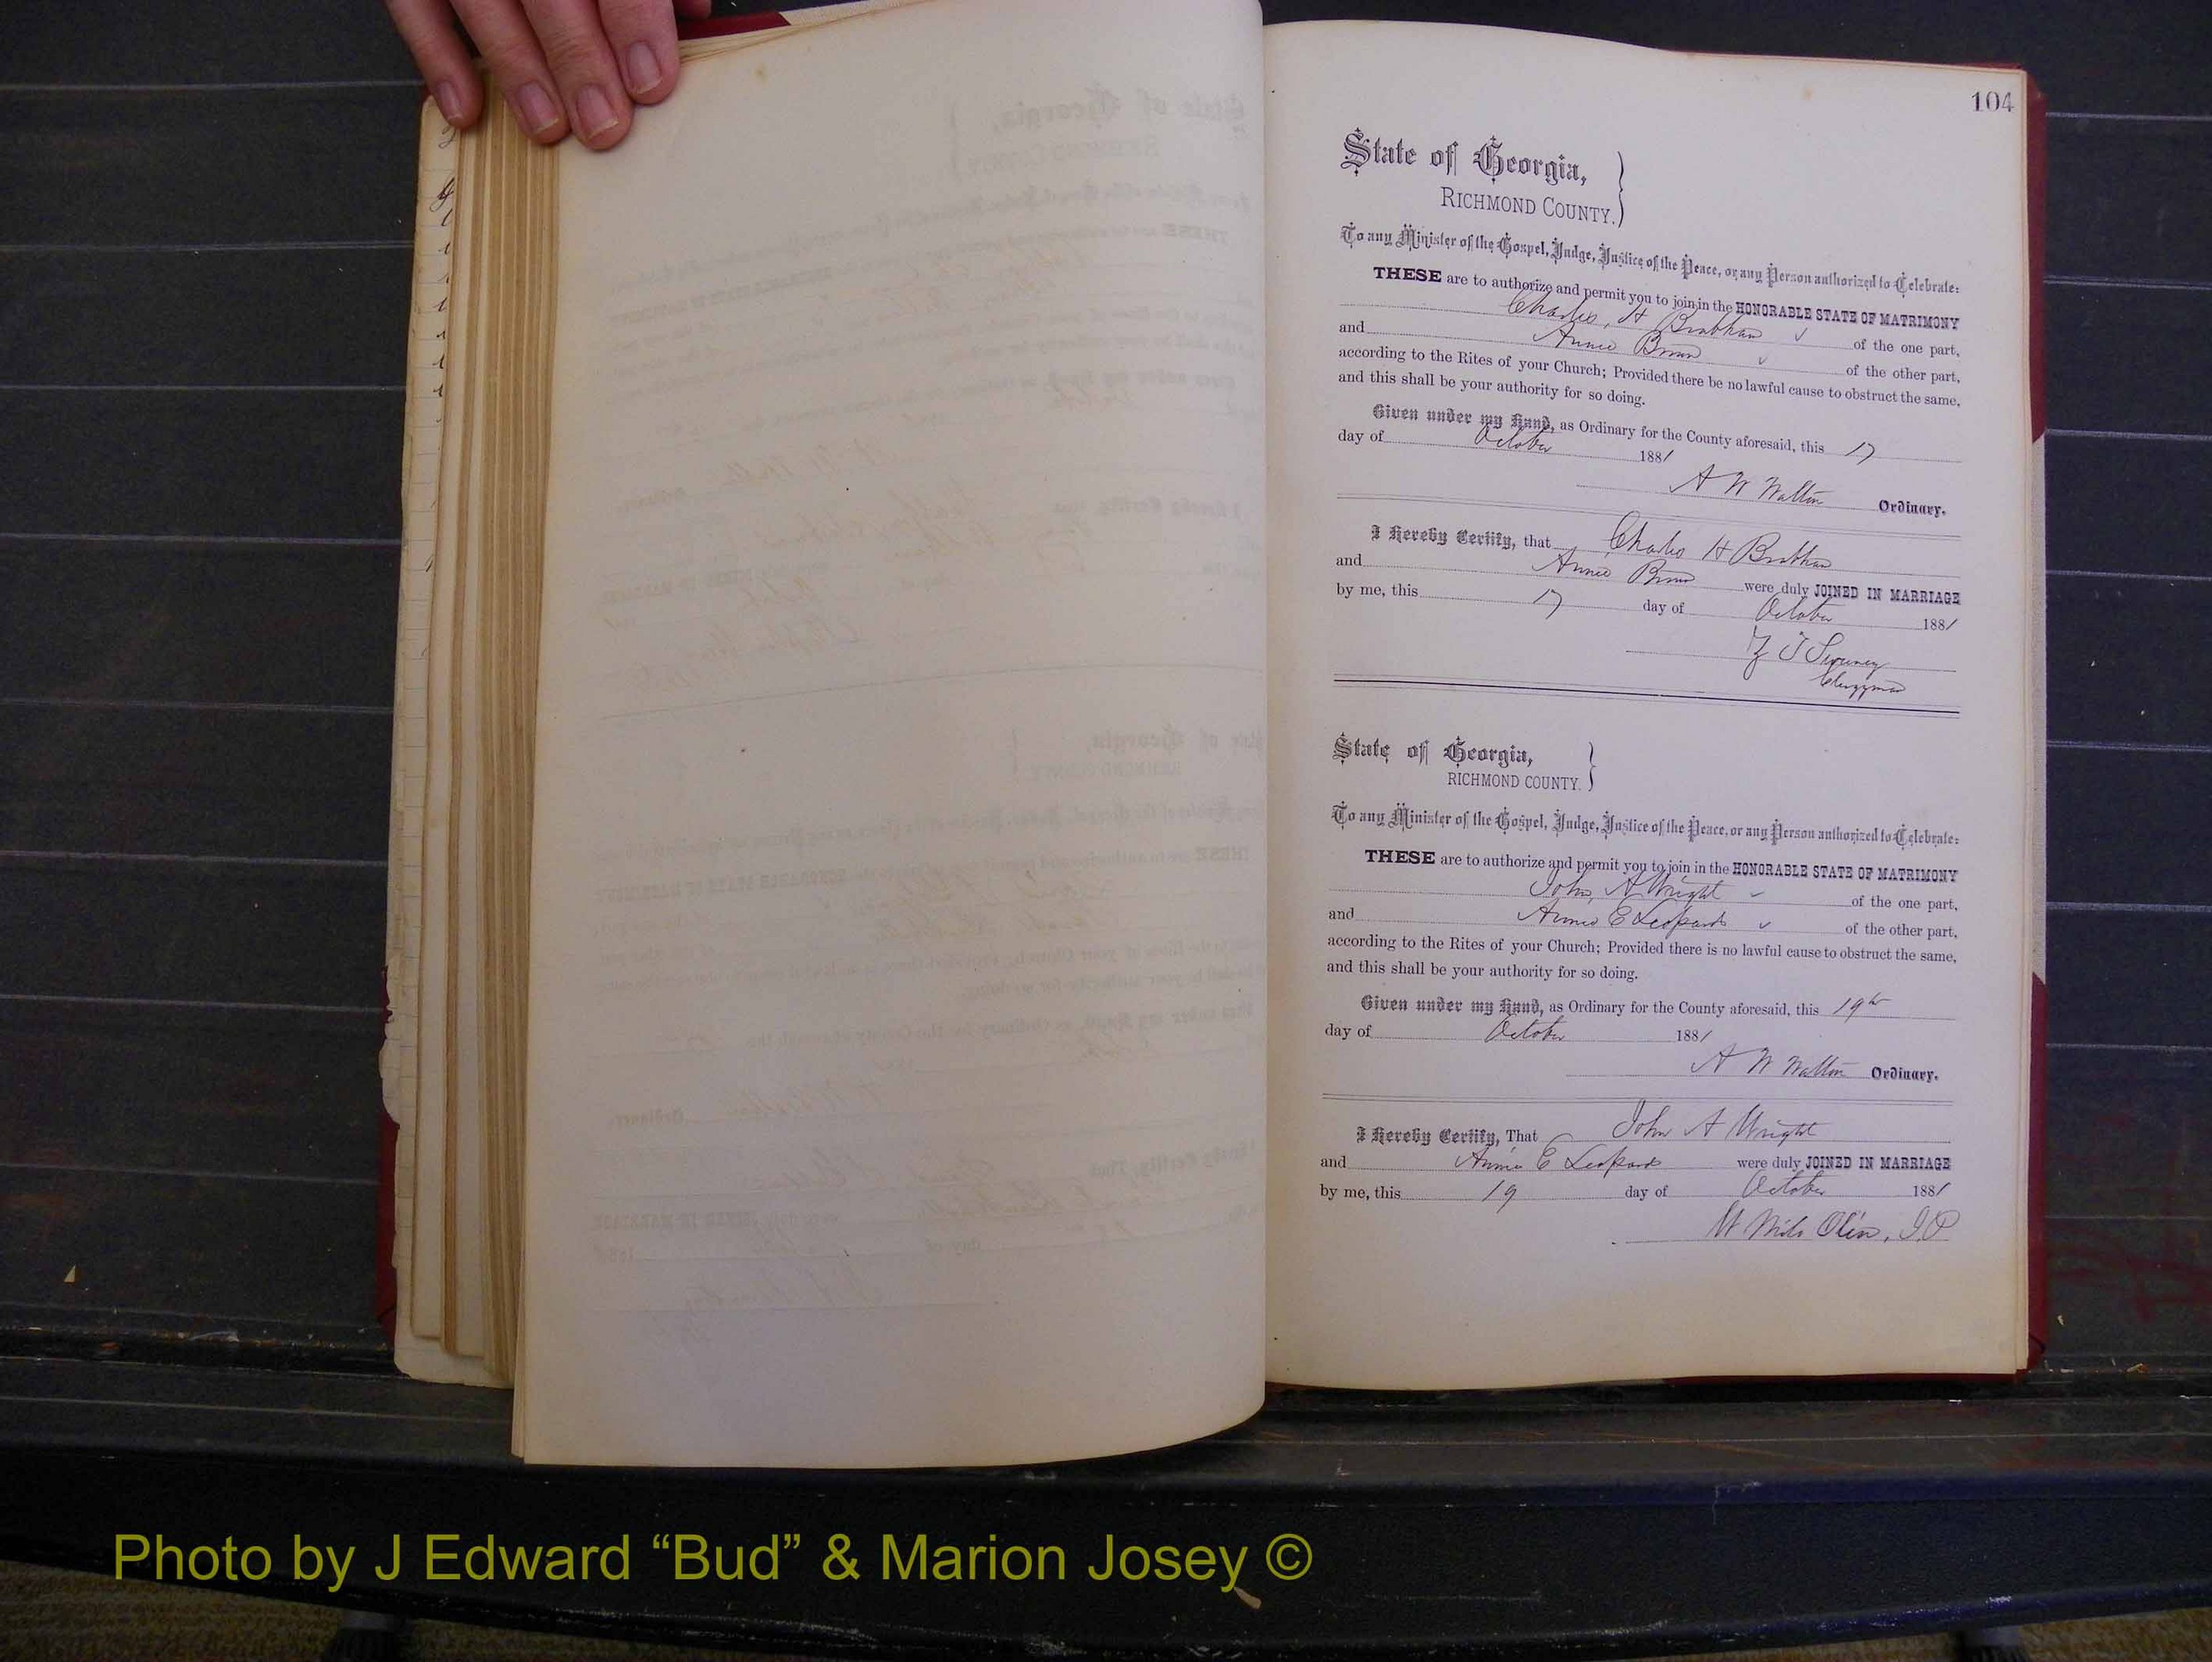 104
State of Georgia,
RICHMOND COUNTY.
To any Minister of the Gospel, Judge, Justice of the Peace, or any Person authorized to Celebrate:
THESE are to authorize and permit you to join in the HONORABLE STATE OF MATRIMONY
Charles, H Brabham of the one part,
and Annie of the other part,
according to the Rites of your Church; Provided there be no lawful cause to obstruct the same,
and this shall be your authority for so doing.
Given under my Hand, as Ordinary for the County aforesaid, this 17
day of October 1881
A W Walton Ordinary.
I Hereby Certify, that Charles H Brabham
and Annie were duly JOINED IN MARRIAGE
by me, this 17 day of October 1881
Clergyman
State of Georgia,
RICHMOND COUNTY.
To any Minister of the Gospel, Judge, Justice of the Peace, or any Person authorized to Celebrate:
THESE are to authorize and permit you to join in the HONORABLE STATE OF MATRIMONY
John, A Wright of the one part,
and Annie E Leopard of the other part,
according to the Rites of your Church; Provided there is no lawful cause to obstruct the same,
and this shall be your authority for so doing.
Given under my Hand, as Ordinary for the County aforesaid, this 19th
day of October 1881
A W Walton Ordinary.
I Hereby Certify, That John A Wright
and Annie E Leopard were duly JOINED IN MARRIAGE
by me, this 19 day of October 1881
W Milo Olin, J.P
Photo by J Edward “Bud” & Marion Josey ©